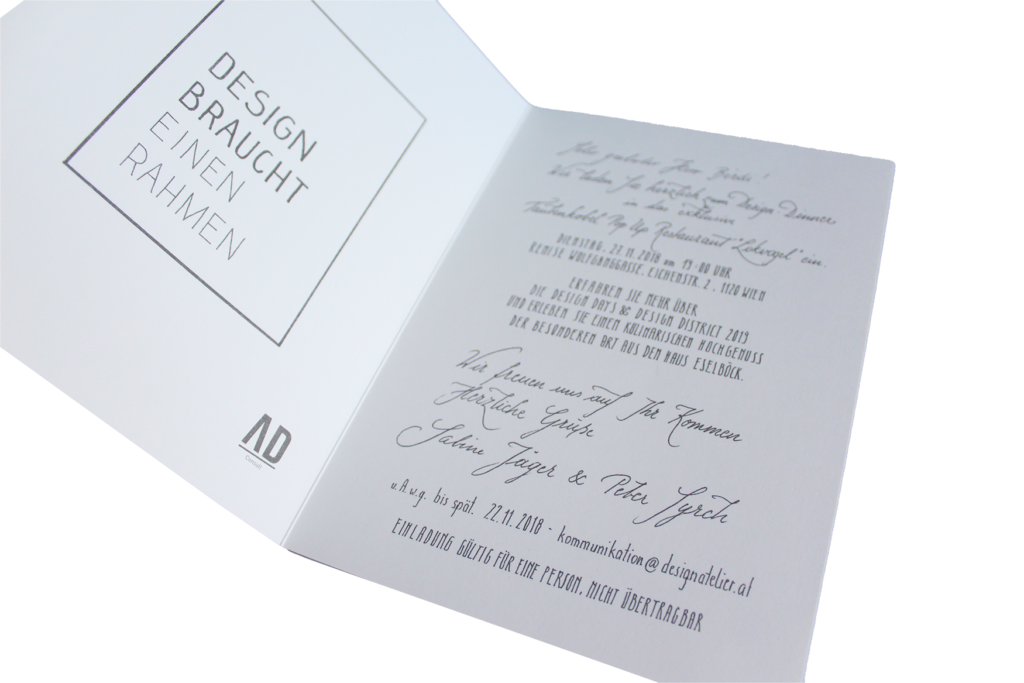 DESIGN
BRAUCHT
EINEN
RAHMEN
AD
Consult
Sehr geehrter Herr
Wir laden Sie herzlich zum Design Dinner
in das exklusive
Taubenkobel Pop Up Restaurant "Lokvogel" ein.
DIENSTAG, 27.11.2018 um 19:00 UHR
REMISE WOLFGANGGASSE, EICHENSTR. 2, 1120 WIEN
ERFAHREN SIE MEHR ÜBER
DIE DESIGN DAYS & DESIGN DISTRICT 2019
UND ERLEBEN SIE EINEN KULINARISCHEN HOCHGENUSS
DER BESONDEREN ART AUS DEM HAUS ESELBÖCK.
Wir freuen uns auf Ihr Kommen
Herzliche Grüße
Sabine Jäger & Peter Syrch
u.A.w.g. bis spät. 22.11.2018 - kommunikation@designatelier.at
EINLADUNG GÜLTIG FÜR EINE PERSON, NICHT ÜBERTRAGBAR